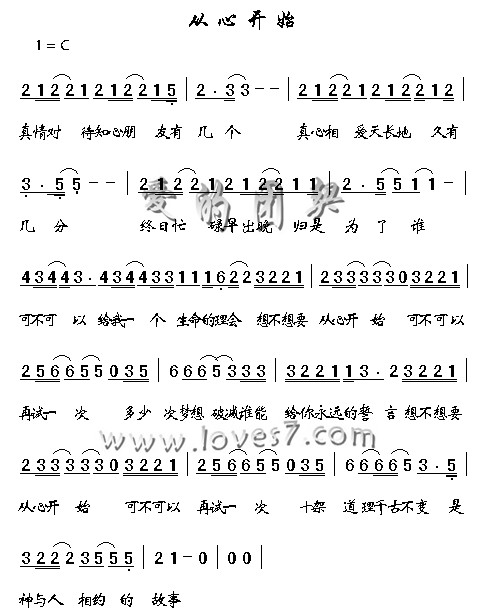 从心开始
1=C
2122122122215|2·33--|2122122122212|
真情对 待知心朋 友有 几个 真心相 爱天长地 久有
3·55--|2122122122221|2·5511-|
几分 终日忙 碌早出晚 归是 为了谁
爱的团契
43443·34433111622 03221|2333333033221|
可不可 以 给我一个 生命的理会 想不想要 从心开 始 可不可以
2566550 35|6665333 3221|13·23221|
再试一 次 多少 次梦想 破灭谁能 给你永远的誓 言 想不想要
www.loves7.com
2333333033221|256655035|66653·5|
从心开 始 可不可以 再试一 次 十架 道理千古不变 是
32223555|21-0|00|
神与人 相约 的 故事